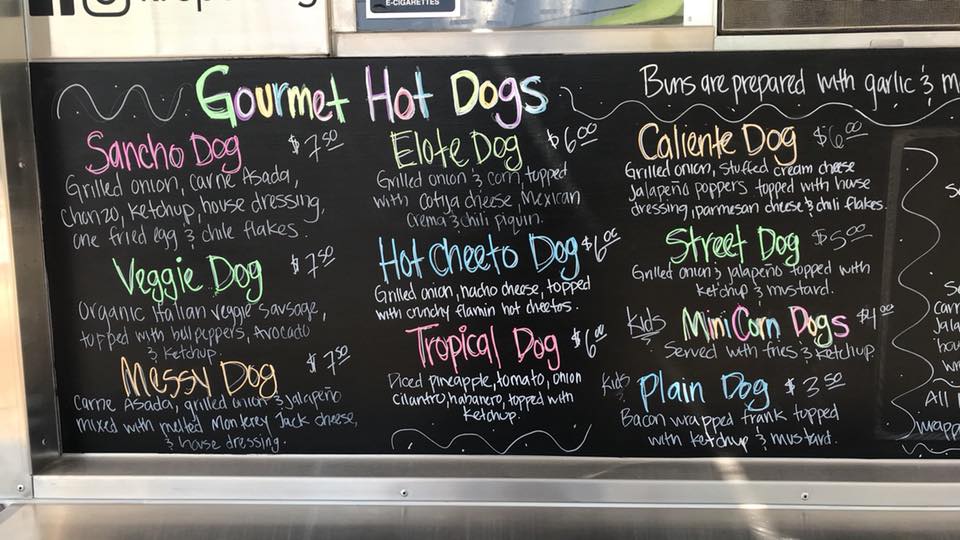 E-CIGARETTES
Gourmet Hot Dogs
Buns are prepared with garlic &
Sancho Dog $7.50
Grilled onion, carne Asada,
chorizo, ketchup, house dressing,
one fried egg & chile flakes.
Veggie Dog $7.50
Organic Italian veggie sausage,
topped with bell peppers, Avocado
& ketchup
Messy Dog $7.50
Carne Asada, grilled onion & jalapeño
mixed with melted Monterey Jack cheese,
& house dressing.
Elote Dog $6.00
Grilled onion & corn, topped
with cotija cheese, Mexican
Crema & chili piquin.
Hot Cheeto Dog $6.00
Grilled onion, nacho cheese, topped
with crunchy flamin hot cheetos.
Tropical Dog $6.00
Diced pineapple, tomato, onion
cilantro, habanero, topped with
ketchup.
Caliente Dog $6.00
Grilled onion, stuffed cream cheese
jalapeño poppers topped with house
dressing, parmesan cheese & chili flakes.
Street Dog $5.00
Grilled onion & jalapeño topped with
ketchup & mustard.
kids Mini Corn Dogs $4.00
Served with fries & ketchup.
kids Plain Dog $3.50
Bacon wrapped frank topped
with ketchup & mustard.
All